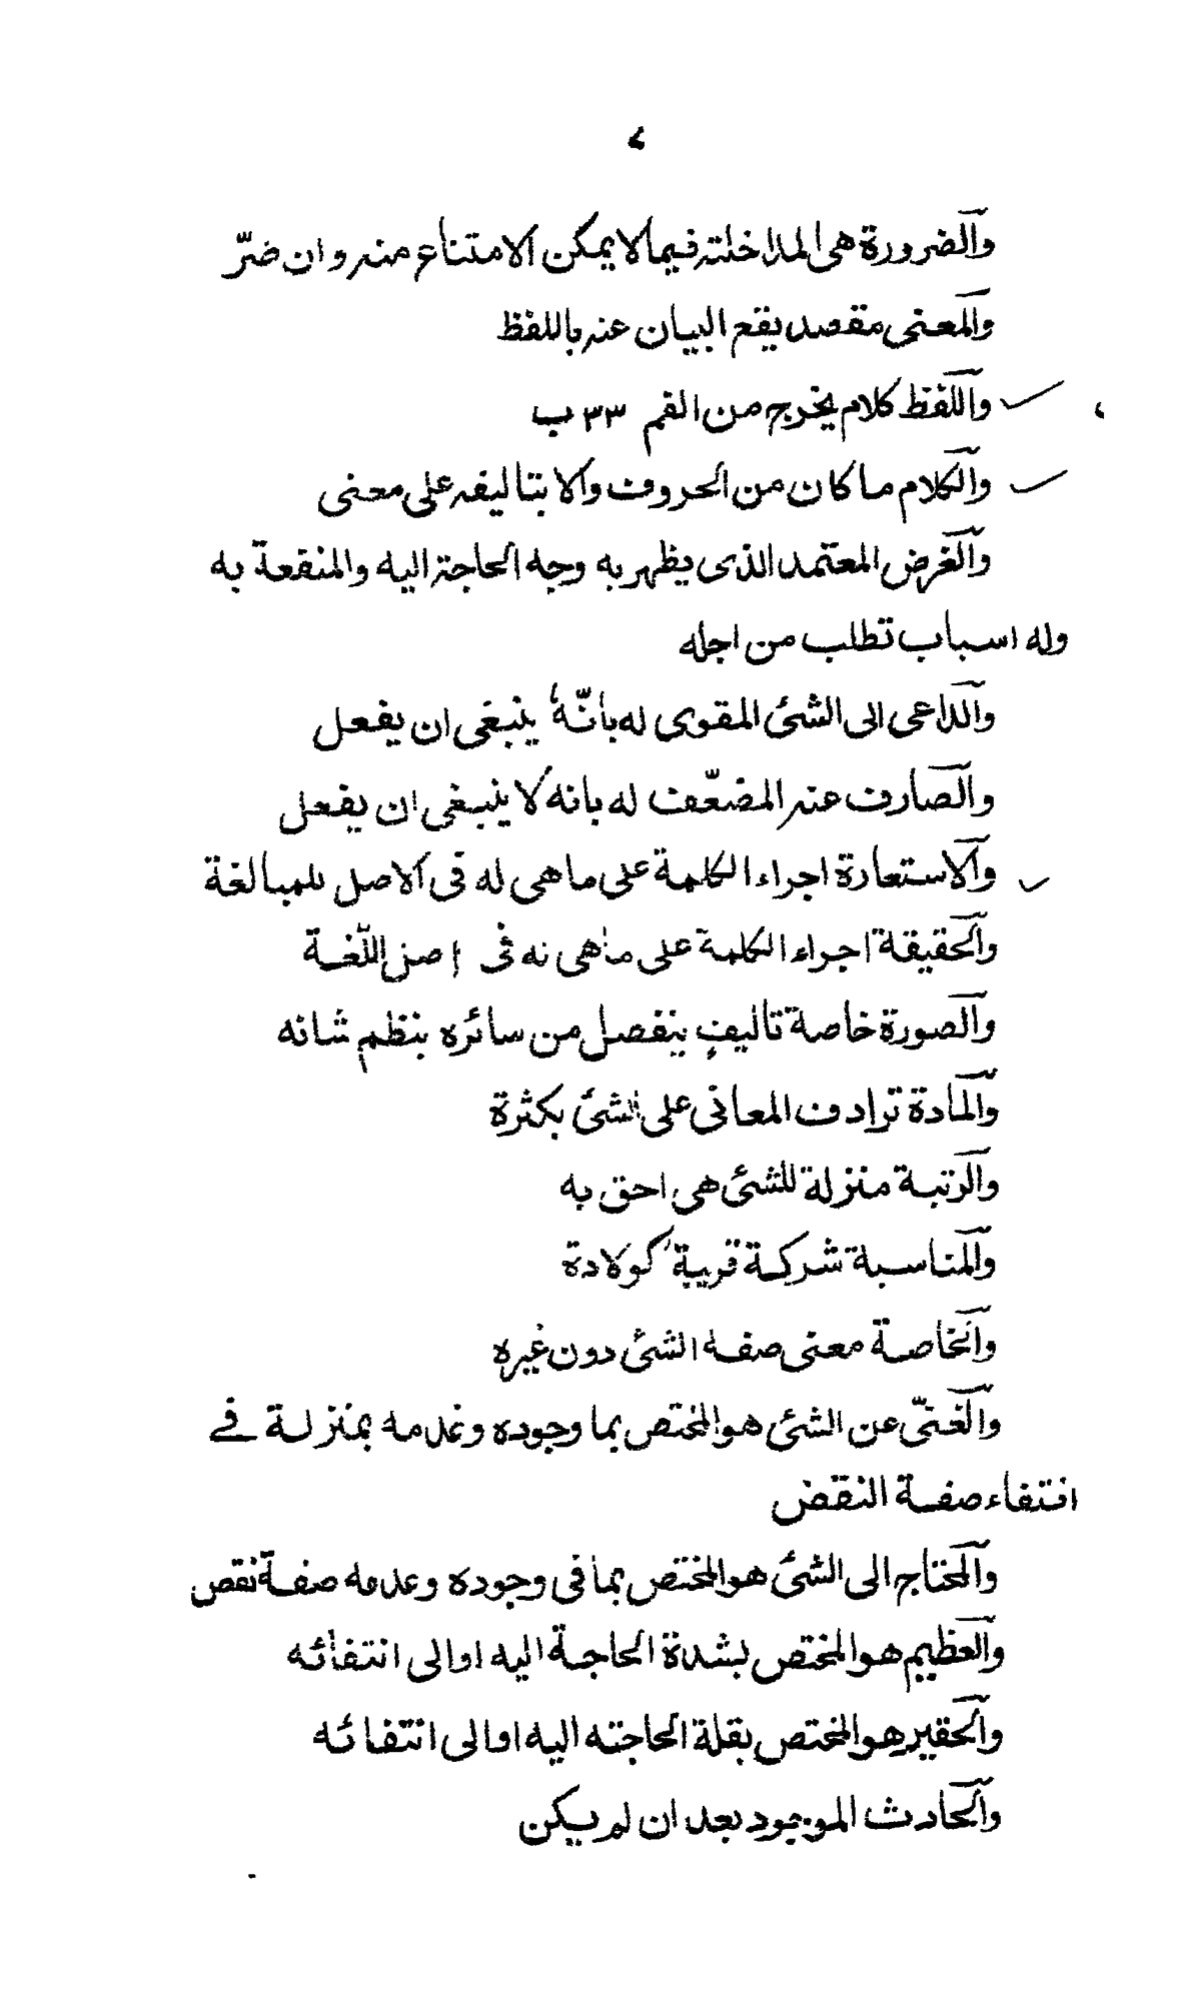 والضرورة هى المداخلته فيما لا يمكن الامتناع منه وان ضرّ
والمعنى مقصد يقع البيان عنه باللفظ
واللفظ كلام يخرج من الفم ٣٣ ب
والكلام ما كان من الحروف والا بتاليفه على معنى
والغرض المعتمد الذى يظهر به وجه الحاجة اليه والمنفعة به
وله اسباب تطلب من اجله
والداعى الى الشئ المقوى له بانّهٗ ينبغى ان يفعل
والصارف عنه المضعّف له بانه لا ينبغى ان يفعل
والاستعارة اجراء الكلمة على ما هى له فى الاصل للمبالغة
والحقيقة اجراء الكلمة على ما هى له فى اصل اللّغة
والصورة خاصة تاليفٍ ينفصل من سائره بنظم شانه
والمادة ترادف المعانى على الشئ بكثرة
والرتبة منزلة للشئ هى احق به
والمناسبة شركة قريبة كولادة
والخاصة معنى صفة الشئ دون غيره
والغنىّ عن الشئ هو المختص بما وجوده وعدمه بمنزلة فے
انتفاء صفة النقض
والمحتاج الى الشئ هو المختص بما فى وجوده وعدمه صفة نقص
والعظيم هو المختص بشدة الحاجة اليه او الى انتفائه
والحقير هو المختص بقلة الحاجته اليه او الى انتفائه
والحادث الموجود بعد ان لم يكن